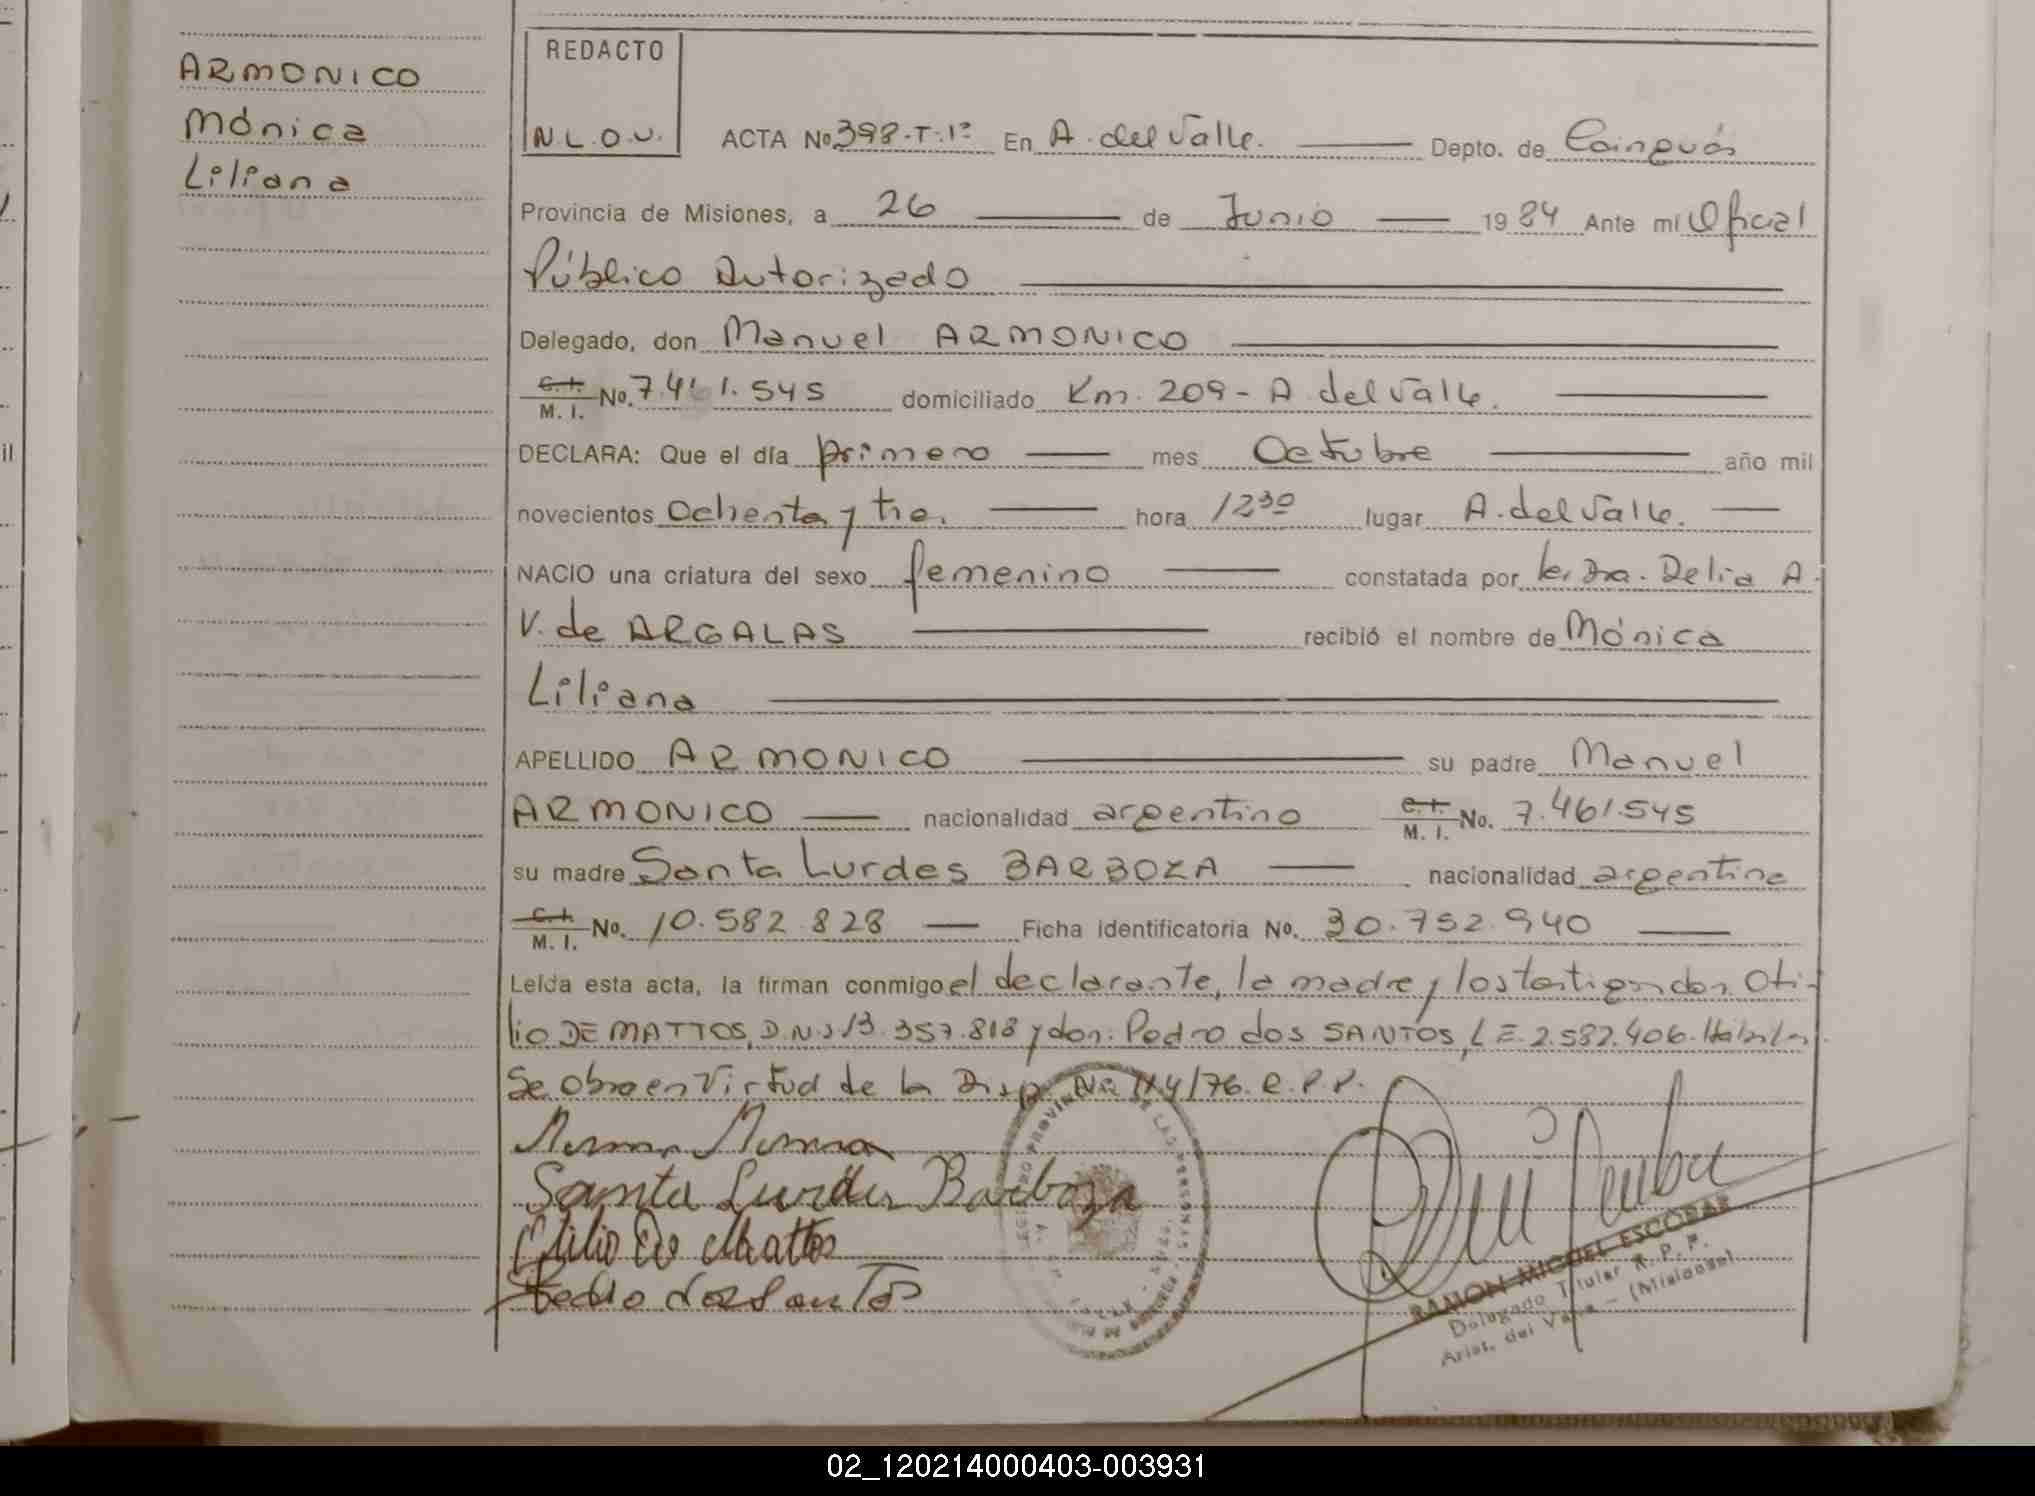 ARMONICO
Mónica
Liliana
REDACTO
N.L.O.V.
ACTA No 398-T:1º En A. del Valle. Depto. de Cainguás
Provincia de Misiones, a 26 de Junio 1984 Ante mi Oficial
Público Autorizado
Delegado, don Manuel ARMONICO
C.I. M. I. No. 7.461.545 domiciliado Km. 209- A del Valle.
DECLARA: Que el día primero mes Octubre año mil
novecientos Ochenta y tres hora 12³⁰ lugar A. del Valle.
NACIO una criatura del sexo femenino constatada por la Dra. Delia A.
V. de ARGALAS recibió el nombre de Mónica
Liliana
APELLIDO ARMONICO su padre Manuel
ARMONICO nacionalidad argentino C.I. M. I. No. 7.461.545
su madre Santa Lurdes BARBOZA nacionalidad argentina
C.I. M. I. No. 10.582.828 Ficha identificatoria No. 30.752.940
Leída esta acta, la firman conmigo el declarante, la madre y los testigos don Oti-
lio DE MATTOS, D.N.I. 13.357.818 y don: Pedro dos SANTOS, L E. 2.582.406. Hábiles.
Se obra en Virtud de la Disp. Nº 114/76. R.P.P.
Santa Lurdes Barboza
Otilio De Mattos
Pedro dos Santos
RAMON MIGUEL ESCOBAR
Delegado Titular R. P. P.
Arist. del Valle - (Misiones)
02_120214000403-003931